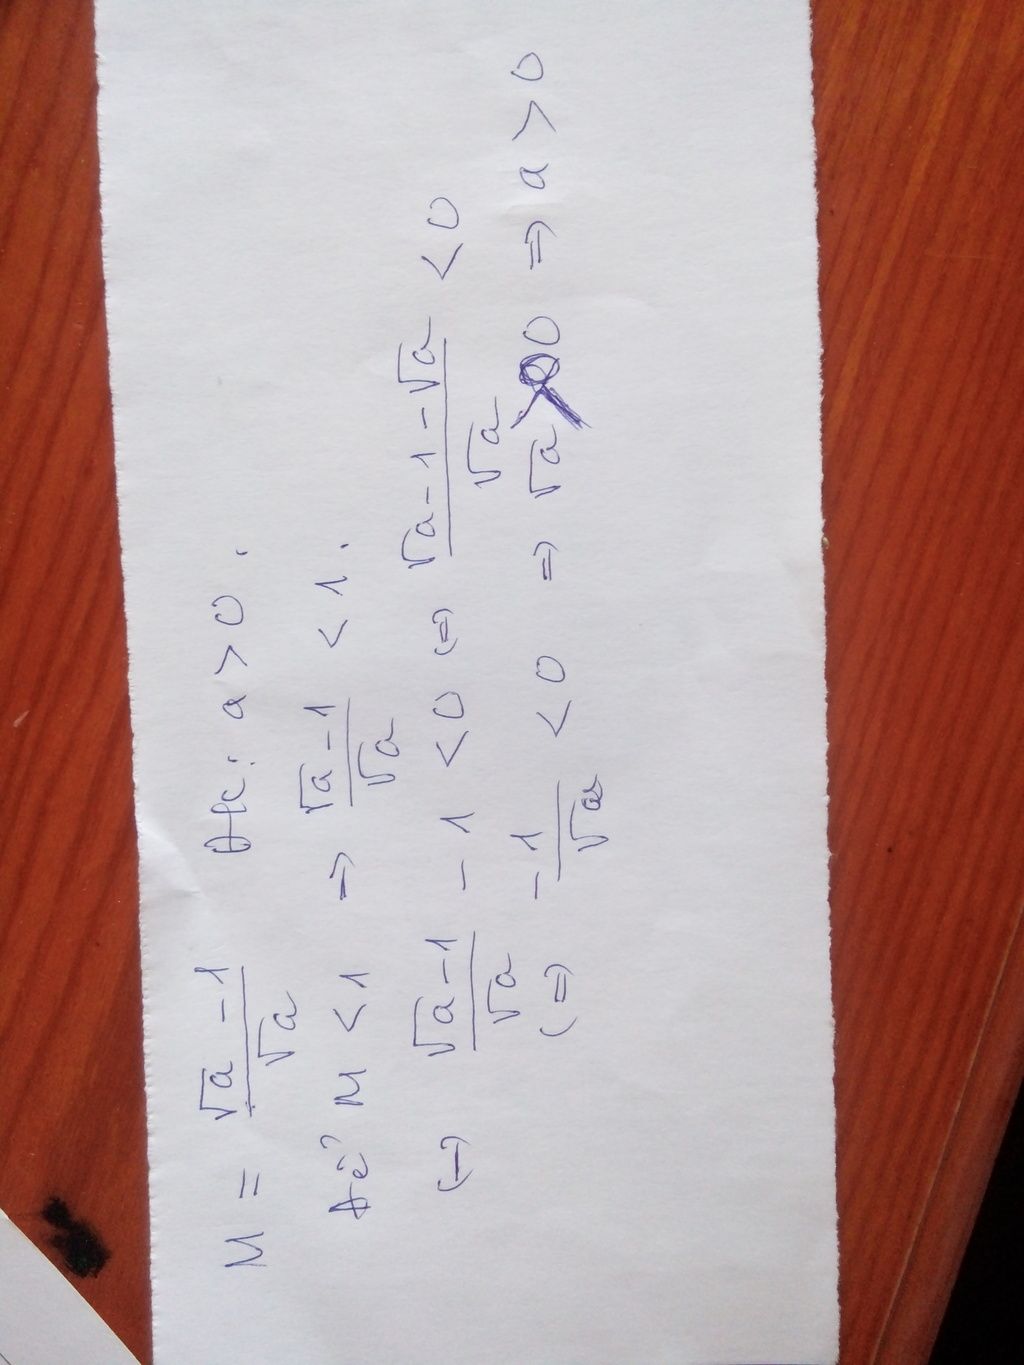 M = (√a - 1)/√a   Đk: a > 0.
Để M < 1 => (√a - 1)/√a < 1.
<=> (√a - 1)/√a - 1 < 0 <=> (√a - 1 - √a)/√a < 0
<=> -1/√a < 0 => √a > 0 => a > 0